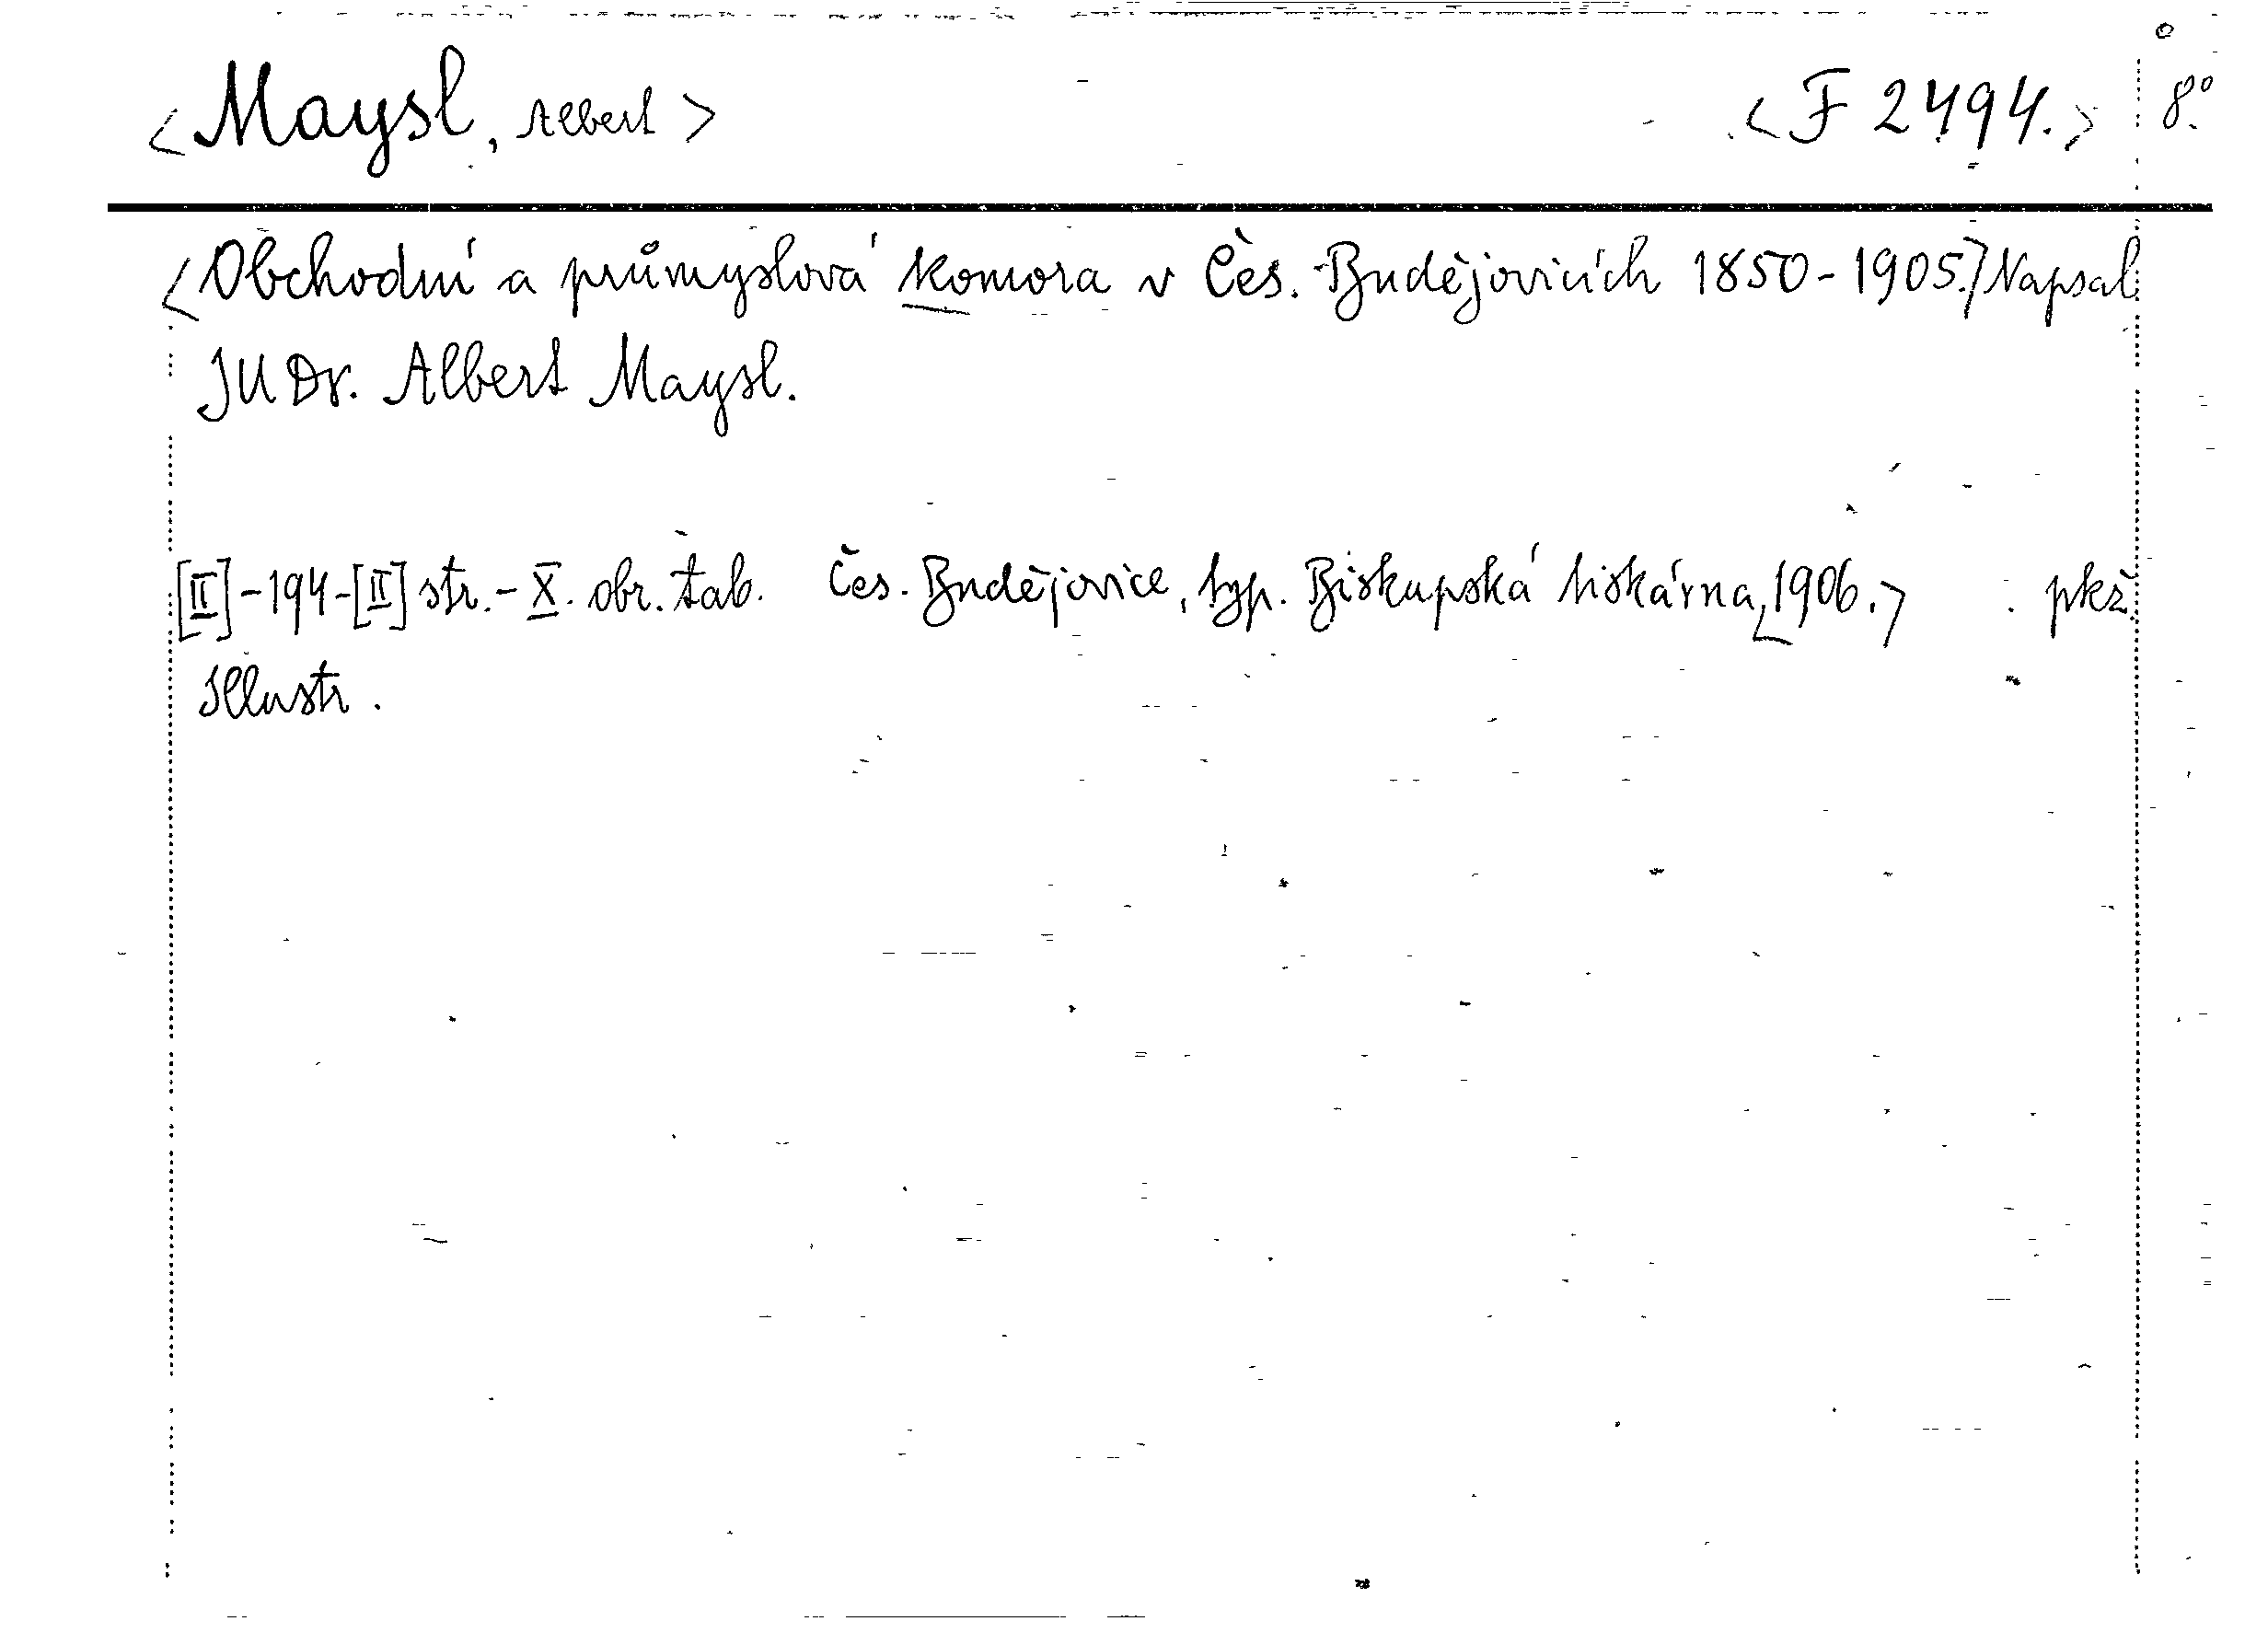 <Maysl, Albert> <F 2494.> 8°.
<Obchodní a průmyslová komora v Čes. Budějovicích 1850-1905.> Napsal
JUDr. Albert Maysl.
[II]-194-[II] str.-X. obr. tab. Čes. Budějovice, typ. Biskupská tiskárna, <1906.> pkž.
Illustr.